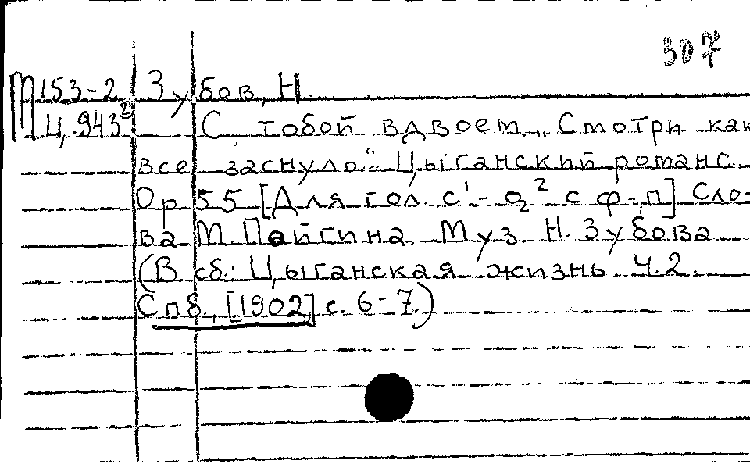 307
М153-2 Зубов, Н.
Ц.943² С тобой вдвоем „Смотри как
все заснуло“ Цыганский романс.
Ор 55 [Для гол. с¹-g² с ф-п] Сло-
ва М. Пойгина Муз Н. Зубова
(В сб.: Цыганская жизнь Ч.2.
Спб., [1902] с. 6-7.)